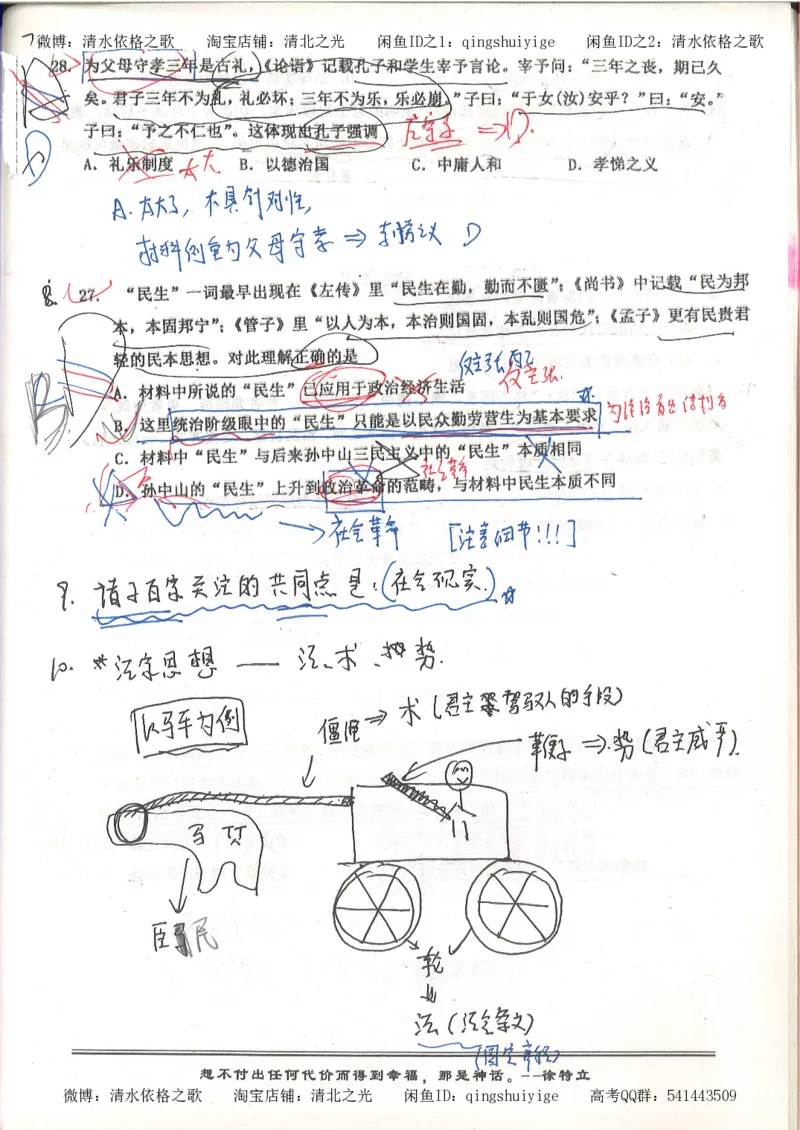 微博：清水依格之歌 淘宝店铺：清北之光 闲鱼ID之1：qingshuiyige 闲鱼ID之2：清水依格之歌
7
28. 为父母守孝三年是古礼，《论语》记载孔子和学生宰予言论。宰予问：“三年之丧，期已久
矣。君子三年不为礼，礼必坏；三年不为乐，乐必崩。”子曰：“于女(汝)安乎？”曰：“安。”
子曰：“予之不仁也”。这体现出孔子强调
D
A．礼乐制度 太大 B．以德治国 C．中庸人和 D．孝悌之义
A. 太大了，不具针对性，
材料侧重为父母守孝 ⇒ 孝悌义 D
8. 27. “民生”一词最早出现在《左传》里“民生在勤，勤而不匮”；《尚书》中记载“民为邦
本，本固邦宁”；《管子》里“以人为本，本治则国固，本乱则国危”；《孟子》更有民贵君
轻的民本思想。对此理解正确的是
仅主张
A．材料中所说的“民生”已应用于政治经济生活
B
B．这里统治阶级眼中的“民生”只能是以民众勤劳营生为基本要求
C．材料中“民生”与后来孙中山三民主义中的“民生”本质相同
社会革命
D．孙中山的“民生”上升到政治革命的范畴，与材料中民生本质不同
→社会革命 [注意细节!!!]
9. 诸子百家关注的共同点是：(社会现实.)☆
10. *法家思想 —— 法、术、势.
以马车为例
缰绳 ⇒ 术 (君主驾驭人的手段)
鞭子 ⇒ 势 (君主威严)
马
臣民
轮
法 (法令条文)
想不付出任何代价而得到幸福，那是神话。--徐特立
微博：清水依格之歌 淘宝店铺：清北之光 闲鱼ID：qingshuiyige 高考QQ群：541443509